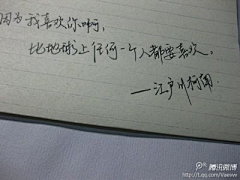 因为我喜欢你啊,
比地球上任何一个人都要喜欢。
—江户川柯南
腾讯微博